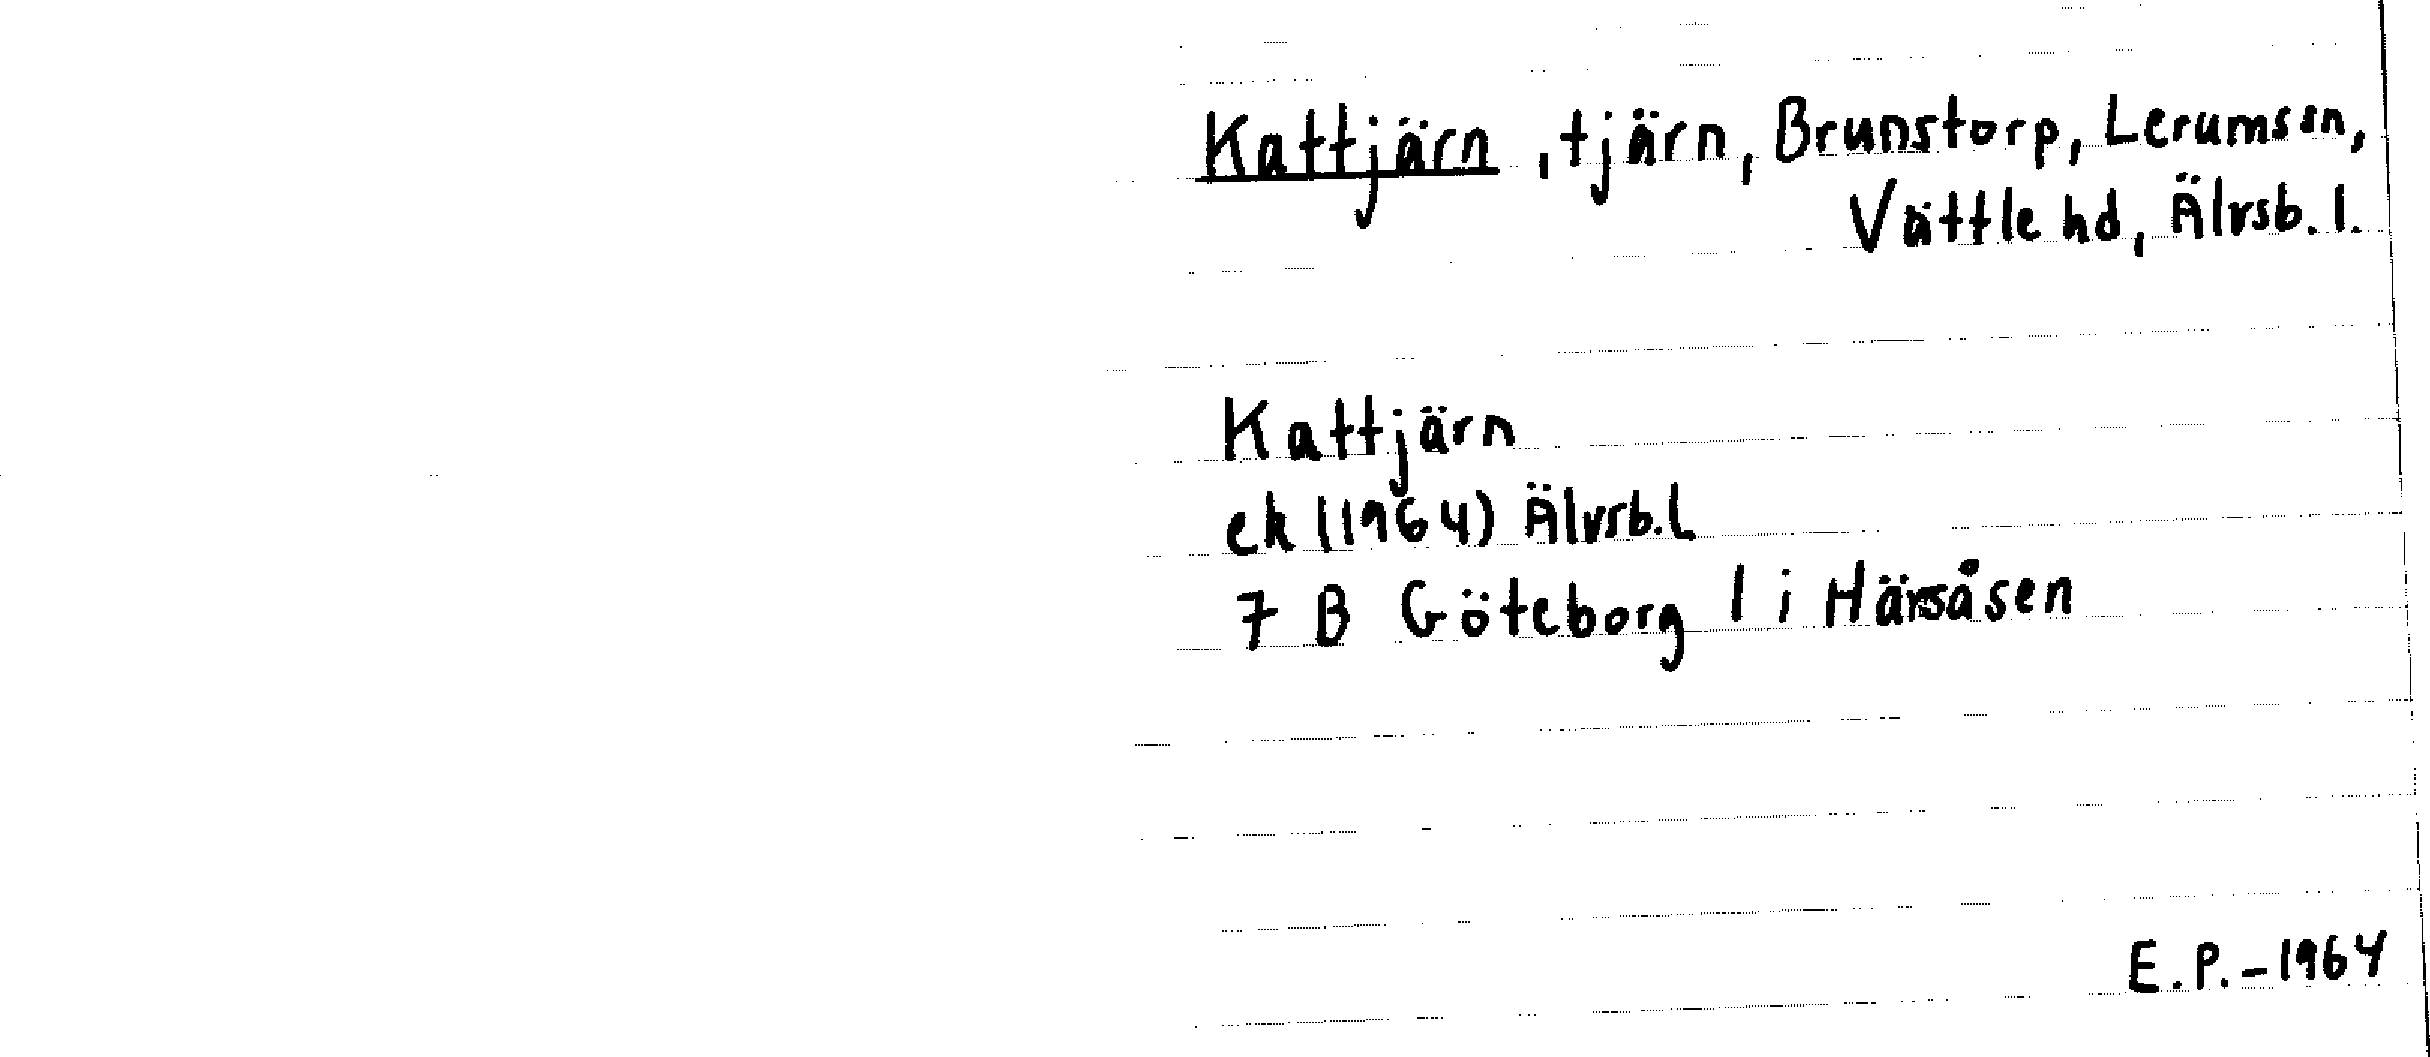 Kattjärn, tjärn, Brunstorp, Lerumssn,
Vättle hd, Älvsb. l.
Kattjärn
ek (1964) Älvsb. l
7 B Göteborg 1 i Härsåsen
E.P. - 1964